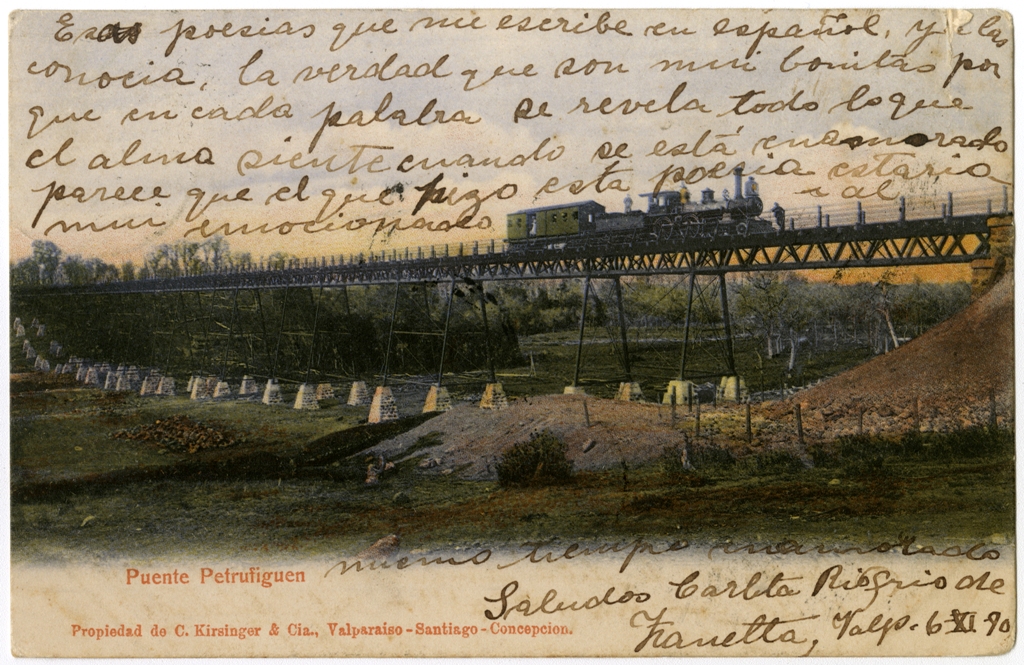 Esas poesias que me escribe en español, ya las
conocia, la verdad que son mui bonitas por
que en cada palabra se revela todo lo que
el alma siente cuando se está enamorado
parece que el que hizo esta poesia estaria
mui emocionado i al
mismo tiempo enamorado
Puente Petrufiguen
Saludos Carlita de
Valp. 6 XI
Propiedad de C. Kirsinger & Cia., Valparaiso - Santiago - Concepcion.